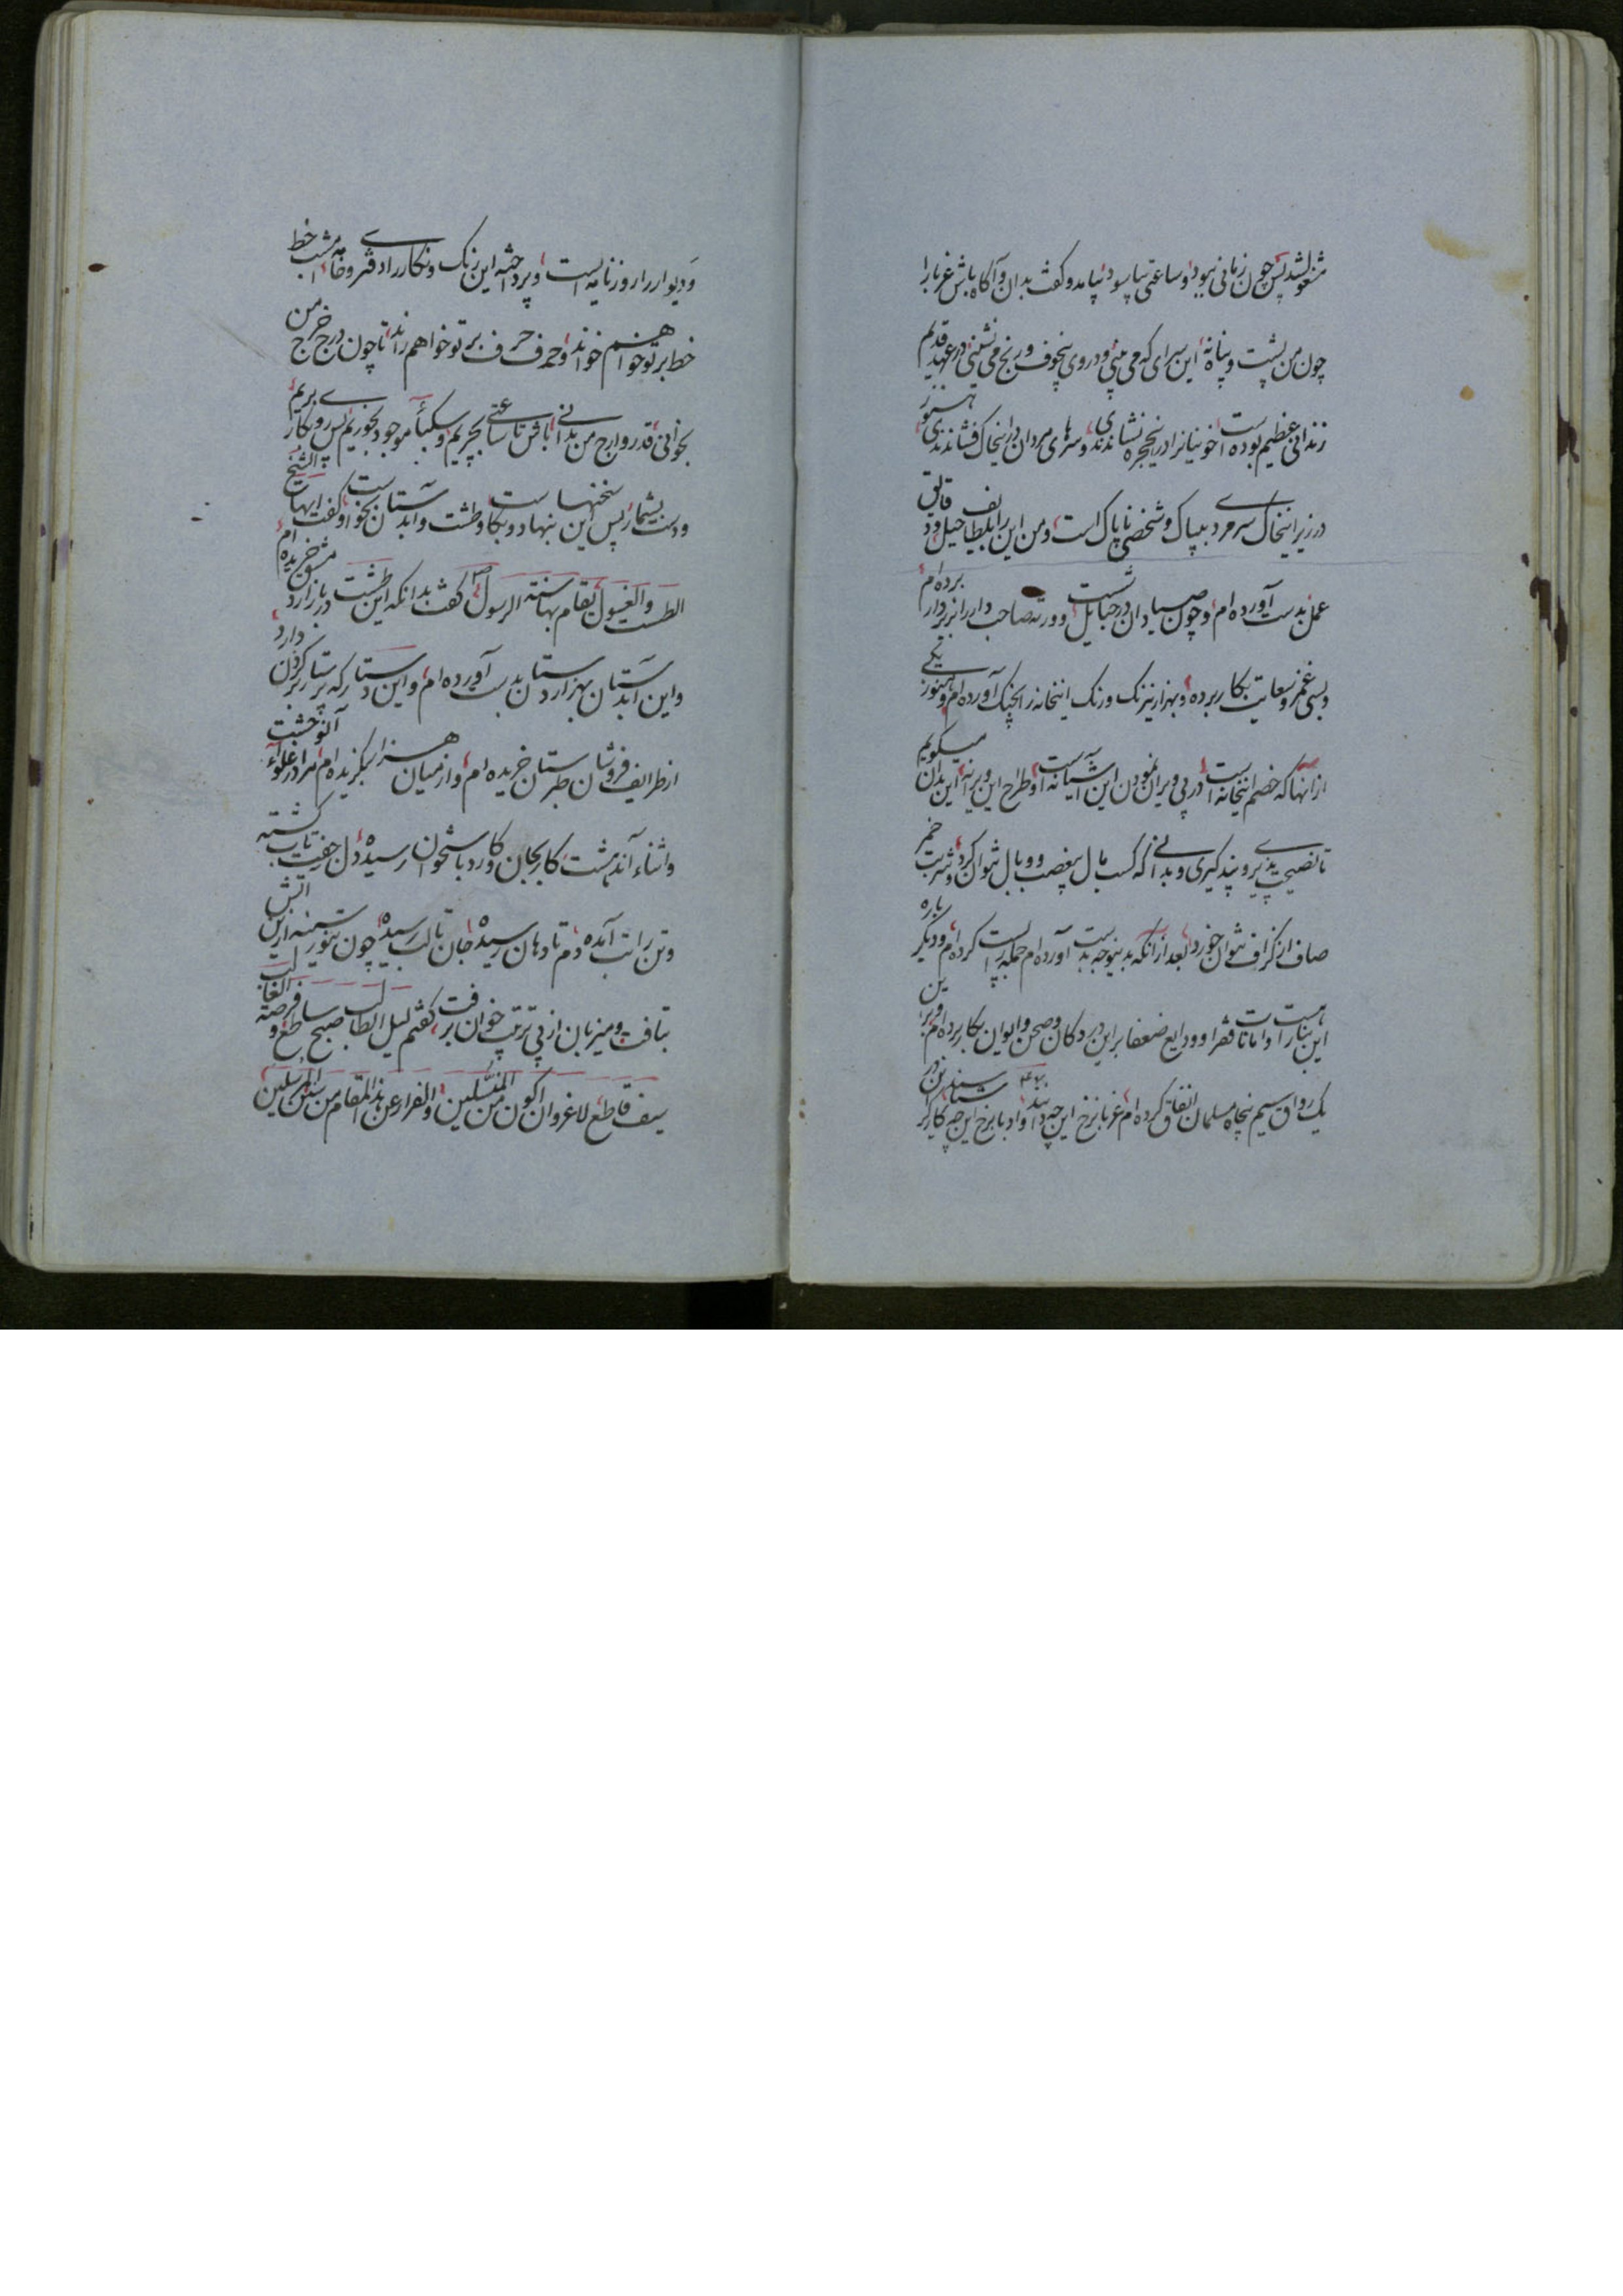 مشغول شد پس چون زمانی ببود و ساعتی بیاسود بیامد و گفت بدان و آگاه باش غربا را
چون من پشت و پناه نه این سرای که می بینی و در وی بیخوف و رنج می نشینی در عهد قدیم
زندانی عظیم بوده است خونیانرا درین حجره نشاندندی و سرهای مردان در اینخاک فشاندندی هنوز
در زیر اینخاک سرمرد بیباک و شخص ناپاک است و من این را بلطایف حیل و دقایق
عمل بدست آورده ام و چون صیادان در حبایل نشست و ورثه صاحب دار را بزیر دار برده ام
و بسی غمز و سعایت بکار برده و بهزار نیرنگ و رنگ اینخانه را بچنگ آورده ام و هنوز یکی
از آنها که خصم اینخانه است در پی ویران نمودن این آشیانه است و طراح این ویرانه این بدان میگویم
تا نصیحت پذیری و پند گیری و بدانی که کسب مال بیغصب و وبال نتوان کرد و شربت خمر
صاف از گزاف نتوان خورد بعد از آنکه بدینوجه بدست آورده ام حمله پست کرده ام و دیگر باره
این بنا را هست و امانات فقرا و ودایع ضعفا برین در و دکان و صحن و ایوان بکار برده ام و برین
یک رواق سیم پنجاه مسلمان انفاق کرده ام غربا نرخ این چه دانند و ادبا نرخ این چه
و دیوار را روز نایه است و پرداخته این رنگ و نگار را دفتر و خامه امشب خط
خط بر تو خواهم خواند و حرف حرف بر تو خواهم راند تا چون درج خرج من
بخوانی قدر و ارج من بدانی باش تا ساعتی بچریم و سکباء موجود بخوریم پس روی بکار بریم
و دست بشمار پس این سخنها بنهاد و بکار و طشت و آبدستان بخواست و گفت ایها الشیخ
الطست و الغسول بقام بهما سنة الرسول گفت بدانکه این طشت در بازار دمشق خریده ام
و این آبدستان بهزار دستان بدست آورده ام و این دستار که پرستار بر گردن دارد
از طرایف فروشان طبرستان خریده ام و از میان هزار بگزیده ام مرا در غلواء آن وحشت
و اثناء آن دهشت کار بجان و کارد باستخوان رسیده دل جفت تاب گشته
و تن را تب آمده دم تا دهان رسیده جان تا لب رسیده چون تنور سینه از این آتش
بتافت و میزبان از پی ترتیب خوان برفت گفتم لیل الطالب صبح ساطع و فرصة الغالب
سیف قاطع لاغرو ان اکون من المتسللین و الفرار عن هذا المقام من سنن المرسلین